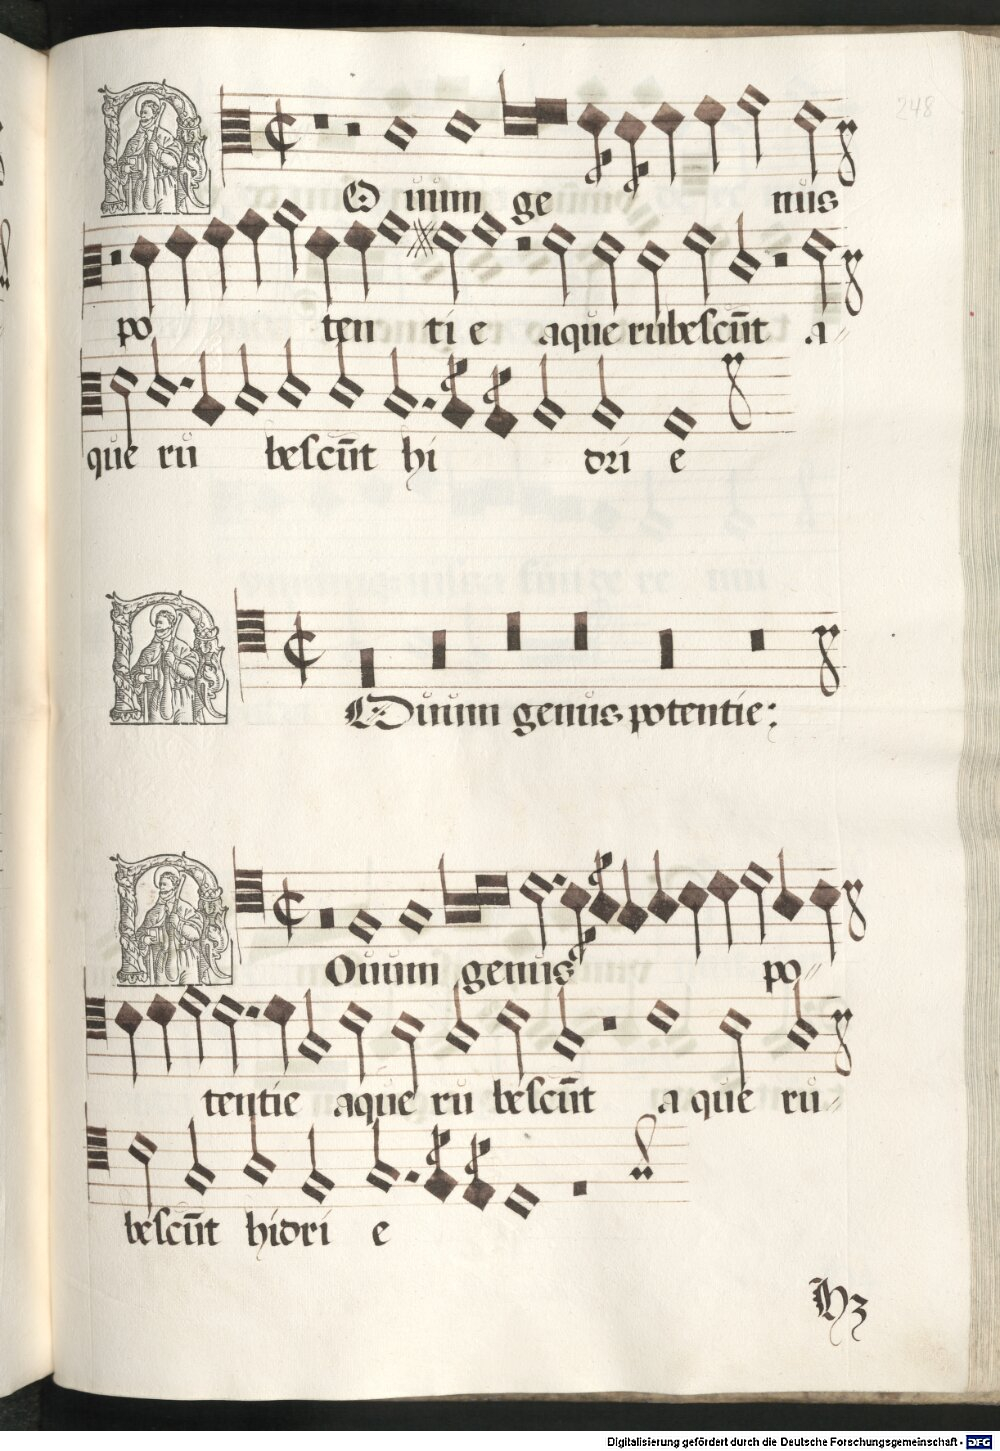 248
N Ouum ge nus
po ten ti e aque rubescūt a
que ru bescūt hi dri e
N Ouum genus potentie:
N Ouum genus po
tentie aque ru bescūt a que ru
bescūt hidri e
Digitalisierung gefördert durch die Deutsche Forschungsgemeinschaft - DFG